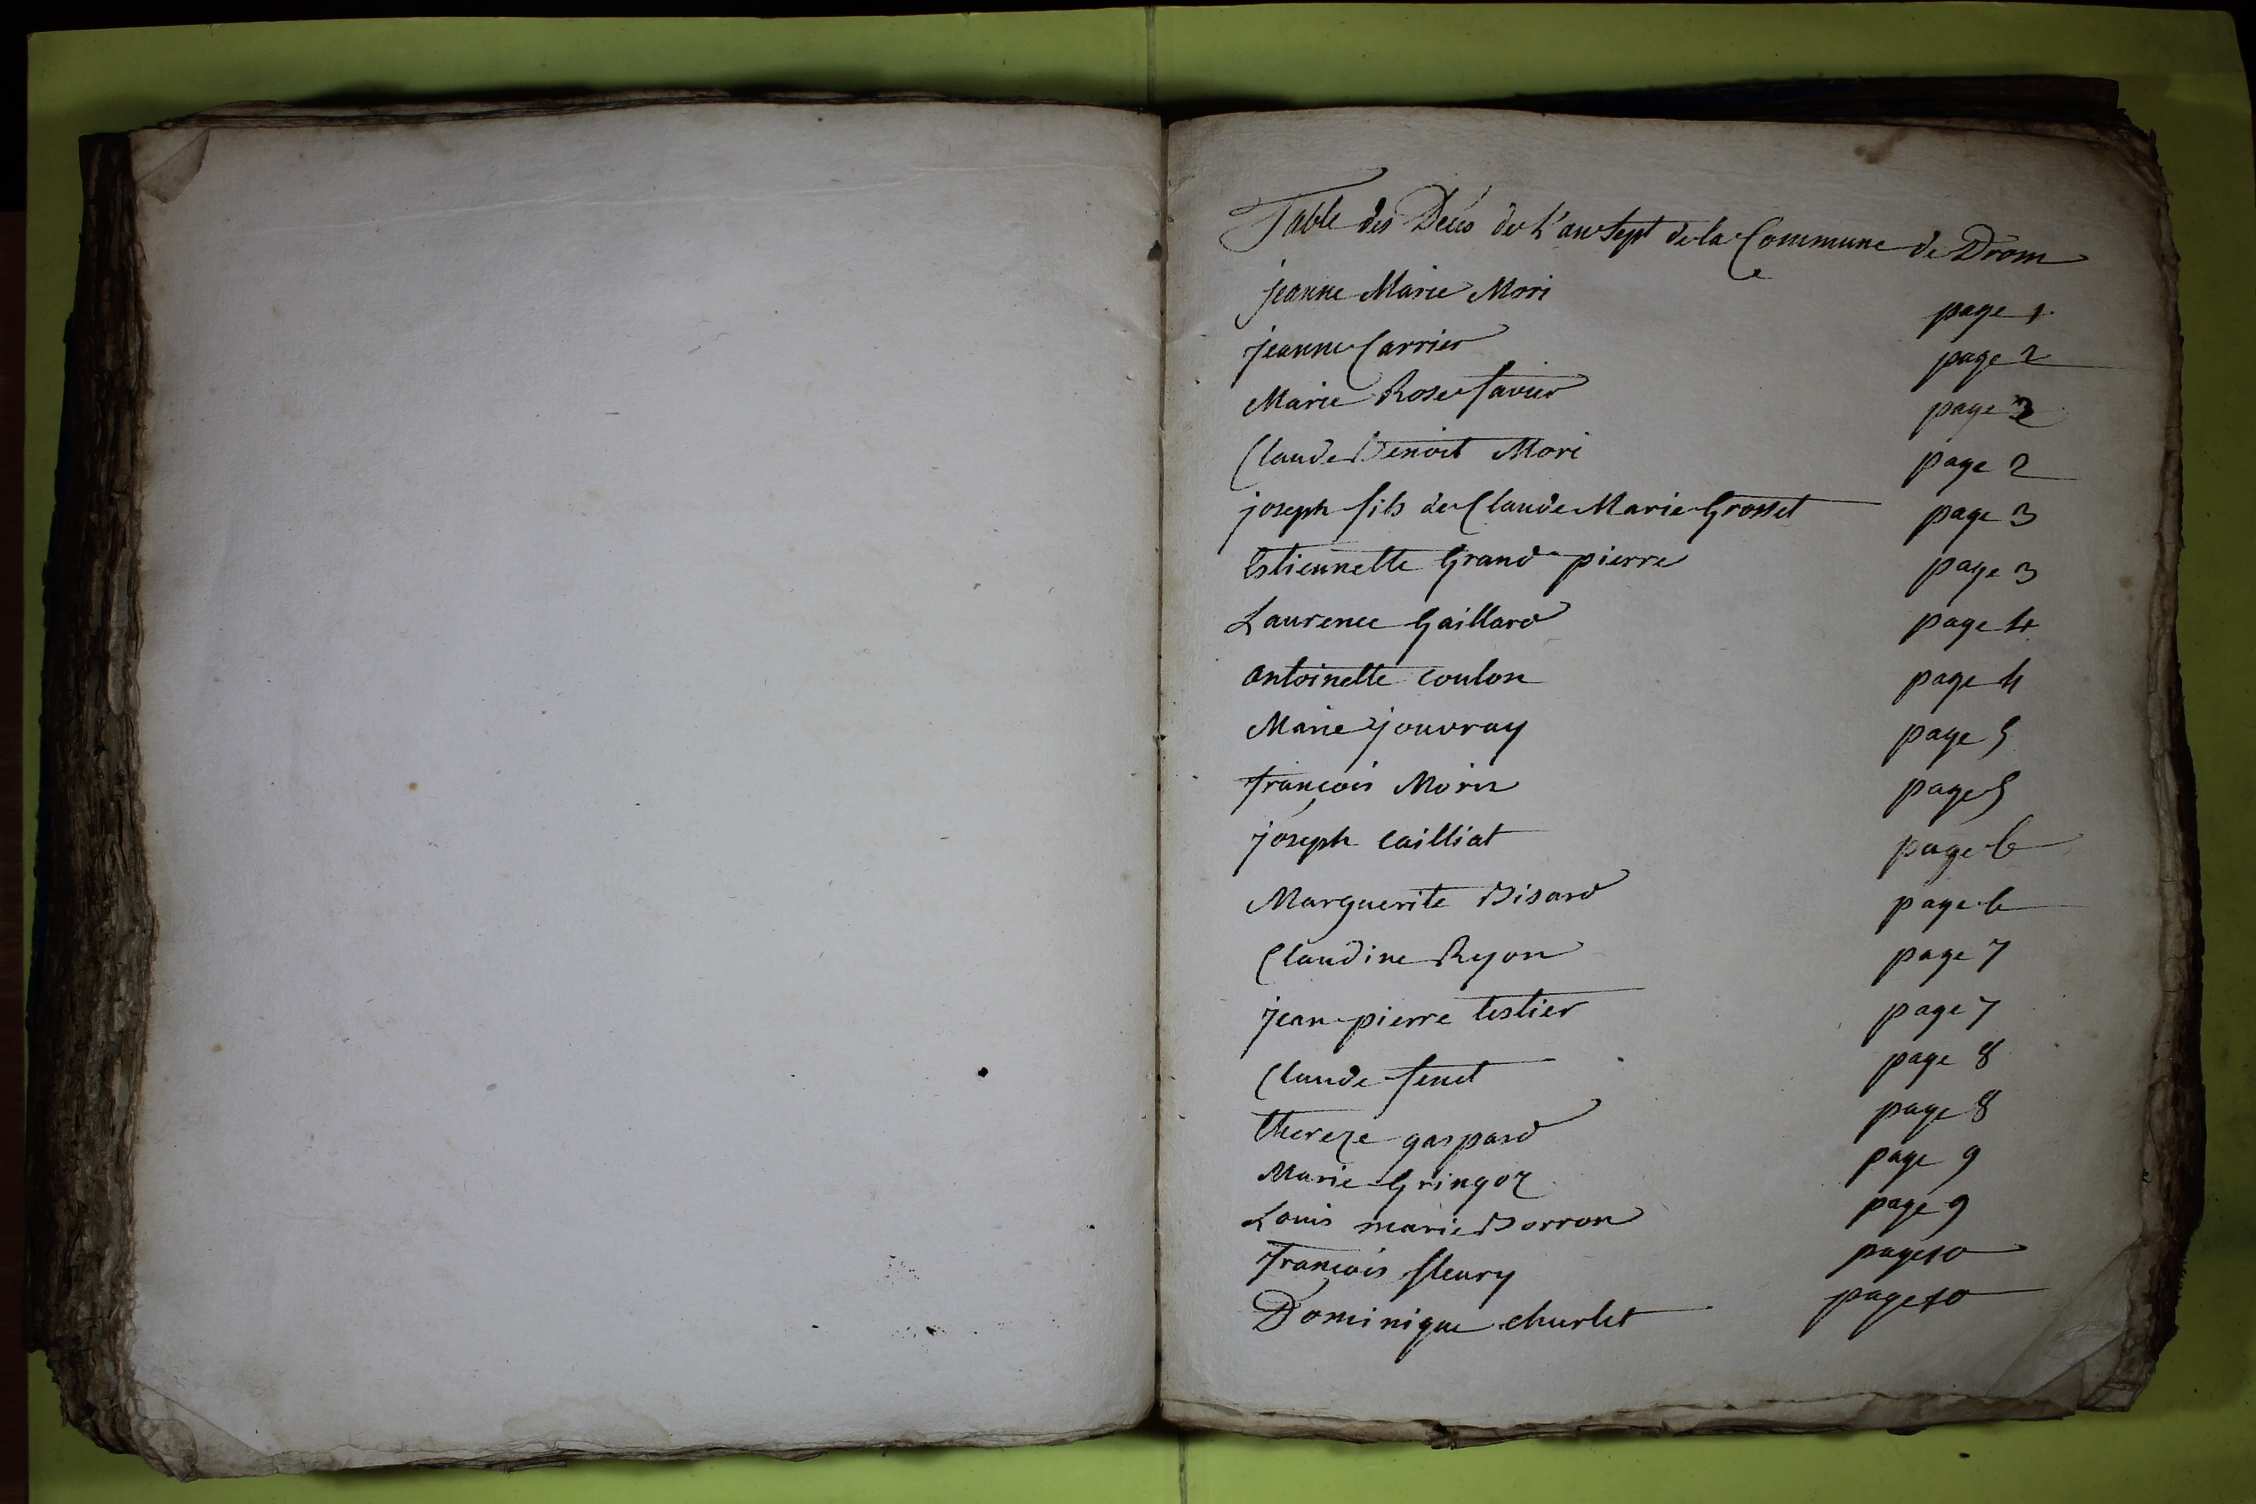 Table des Décés de L'an Sept de la Commune de Drom
jeanne Marie Mori page 1.
jeanne Carrier page 2
Marie Rose favier page 2
Claude Benoit Mori page 2
joseph fils de Claude Marie Grosset page 3
Estiennette Grand pierre page 3
Laurence Gaillard page 4
antoinette coulon page 4
Marie jouvray page 5
françois Morin page 5
joseph Cailliat page 6
Marguerite Bisard page 6
Claudine Ryon page 7
jean pierre testier page 7
Claude fenet page 8
thereze gaspard page 8
Marie Gringoz page 9
Louis marie Borron page 9
françois fleury page 10
Dominique churlet page 10